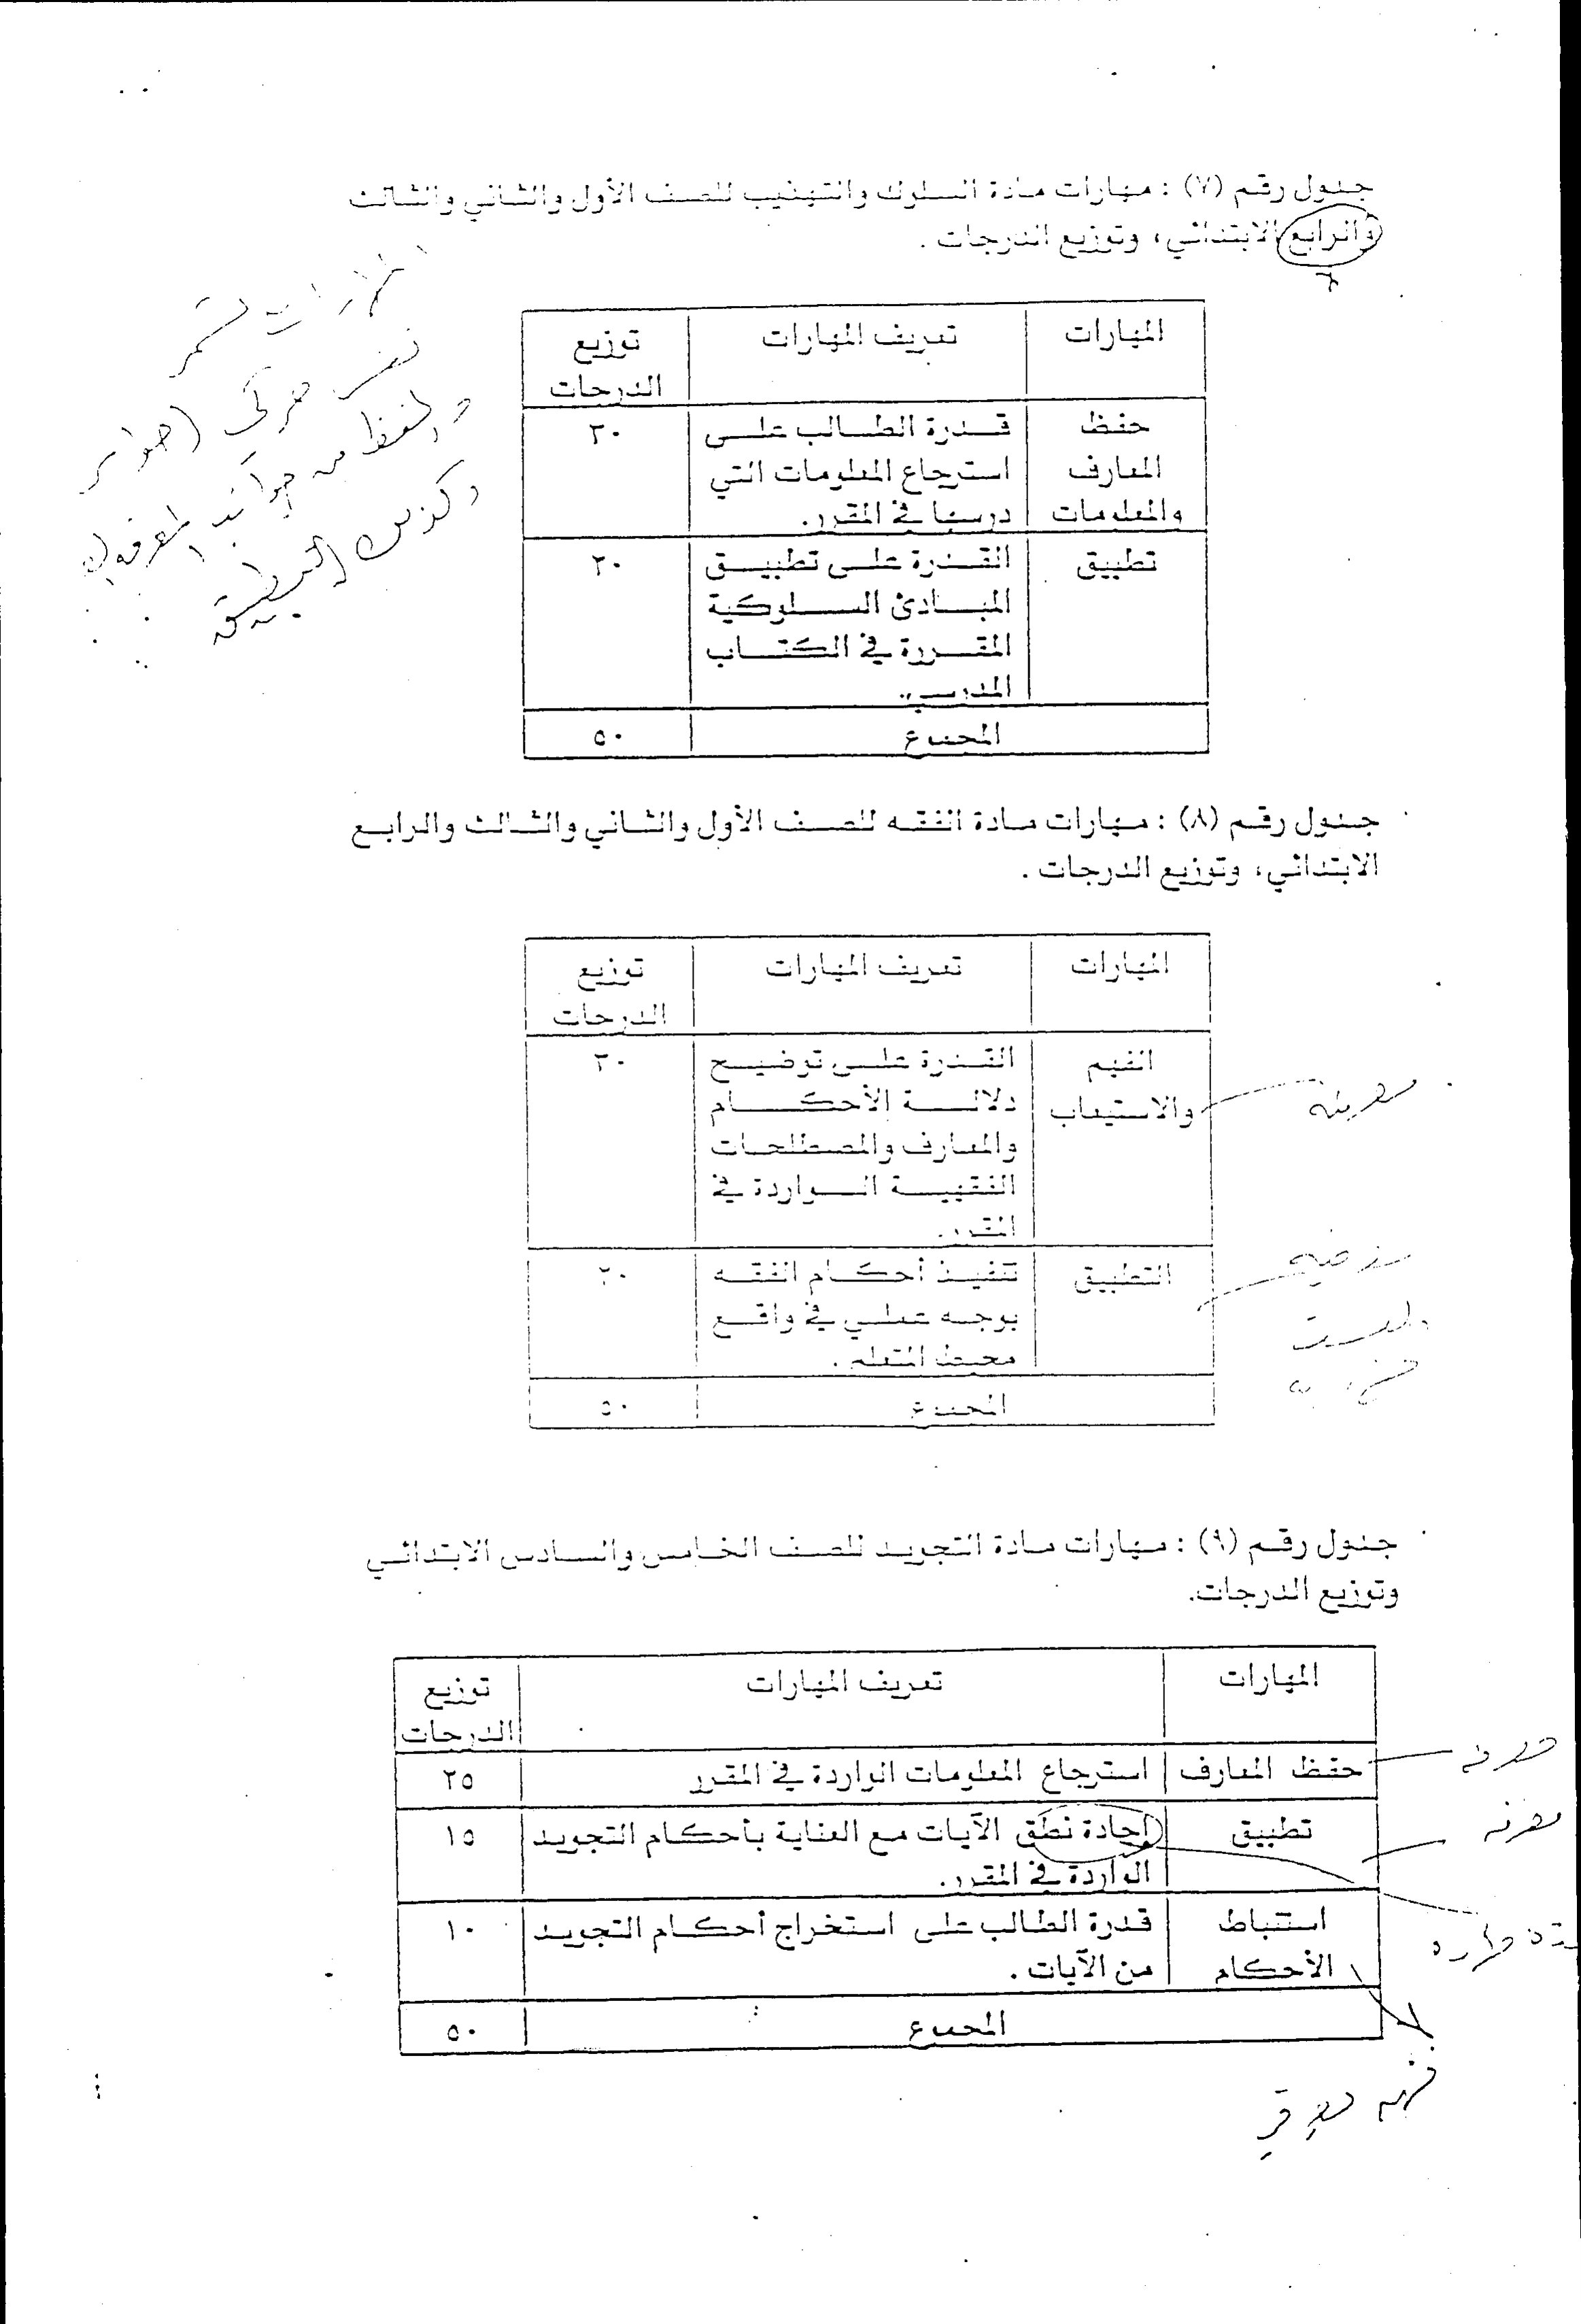 جدول رقم (٧) : مهارات مادة السلوك والتهذيب للصف الأول والثاني والثالث
والرابع الابتدائي، وتوزيع الدرجات .
المهارات
تعريف المهارات
توزيع
الدرجات
حفظ
المعارف
والمعلومات
قدرة الطالب على
استرجاع المعلومات التي
درسها في المقرر.
٣٠
تطبيق
القدرة على تطبيق
المبادئ السلوكية
المقررة في الكتاب
المدرسي.
٢٠
المجموع
٥٠
جدول رقم (٨) : مهارات مادة الفقه للصف الأول والثاني والثالث والرابع
الابتدائي، وتوزيع الدرجات .
المهارات
تعريف المهارات
توزيع
الدرجات
الفهم
والاستيعاب
القدرة على توضيح
دلالة الأحكام
والمعارف والمصطلحات
الفقهية الواردة في
المقرر.
٣٠
التطبيق
تنفيذ أحكام الفقه
بوجه عملي في واقع
محيط المتعلم .
٢٠
المجموع
٥٠
جدول رقم (٩) : مهارات مادة التجويد للصف الخامس والسادس الابتدائي
وتوزيع الدرجات.
المهارات
تعريف المهارات
توزيع
الدرجات
حفظ المعارف
استرجاع المعلومات الواردة في المقرر
٢٥
تطبيق
إجادة نطق الآيات مع العناية بأحكام التجويد
الواردة في المقرر.
١٥
استنباط
الأحكام
قدرة الطالب على استخراج أحكام التجويد
من الآيات .
١٠
المجموع
٥٠